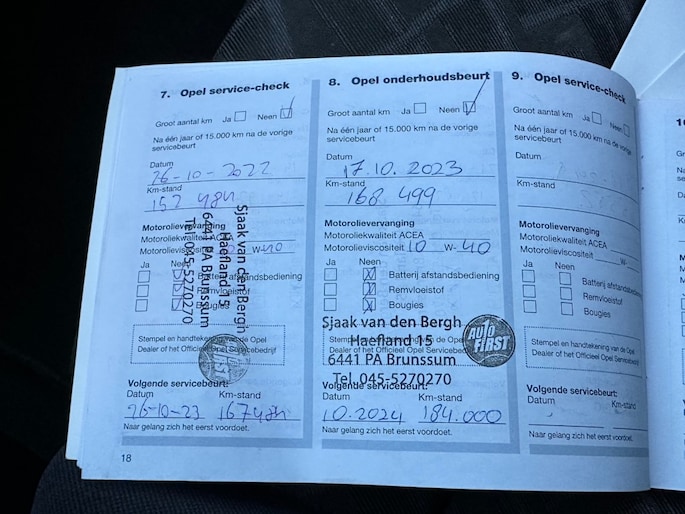 7. Opel service-check
Groot aantal km Ja Neen
Na één jaar of 15.000 km na de vorige
servicebeurt
Datum
26-10-2022
Km-stand
Motorolieverversing
Motoroliekwaliteit ACEA
Motorolieviscositeit W-40
Ja Neen
Batterij afstandsbediening
Remvloeistof
Bougies
Sjaak van den Bergh
Haefland 15
6441 PA Brunssum
Tel. 045-5270270
Stempel en handtekening van de Opel
Dealer of het Officieel Opel Servicebedrijf
AUTO
FIRST
Volgende servicebeurt:
Datum Km-stand
26-10-23
Naar gelang zich het eerst voordoet.
18
8. Opel onderhoudsbeurt
Groot aantal km Ja Neen
Na één jaar of 15.000 km na de vorige
servicebeurt
Datum
17.10.2023
Km-stand
168 499
Motorolievervanging
Motoroliekwaliteit ACEA
Motorolieviscositeit 10 W-40
Ja Neen
Batterij afstandsbediening
Remvloeistof
Bougies
Sjaak van den Bergh
Stempel en handtekening van de Opel
Haefland 15
Dealer of het Officieel Opel Servicebedrijf
6441 PA Brunssum
Tel. 045-5270270
AUTO
FIRST
Volgende servicebeurt:
Datum Km-stand
10.2024 184.000
Naar gelang zich het eerst voordoet.
9. Opel service-check
Groot aantal km Ja Neen
Na één jaar of 15.000 km na de vorige
servicebeurt
Datum
Km-stand
Motorolievervanging
Motoroliekwaliteit ACEA
Motorolieviscositeit W-
Ja Neen
Batterij afstandsbediening
Remvloeistof
Bougies
Stempel en handtekening van de Opel
Dealer of het Officieel Opel Servicebedrijf
Volgende servicebeurt:
Datum Km-stand
Naar gelang zich het eerst voordoet.